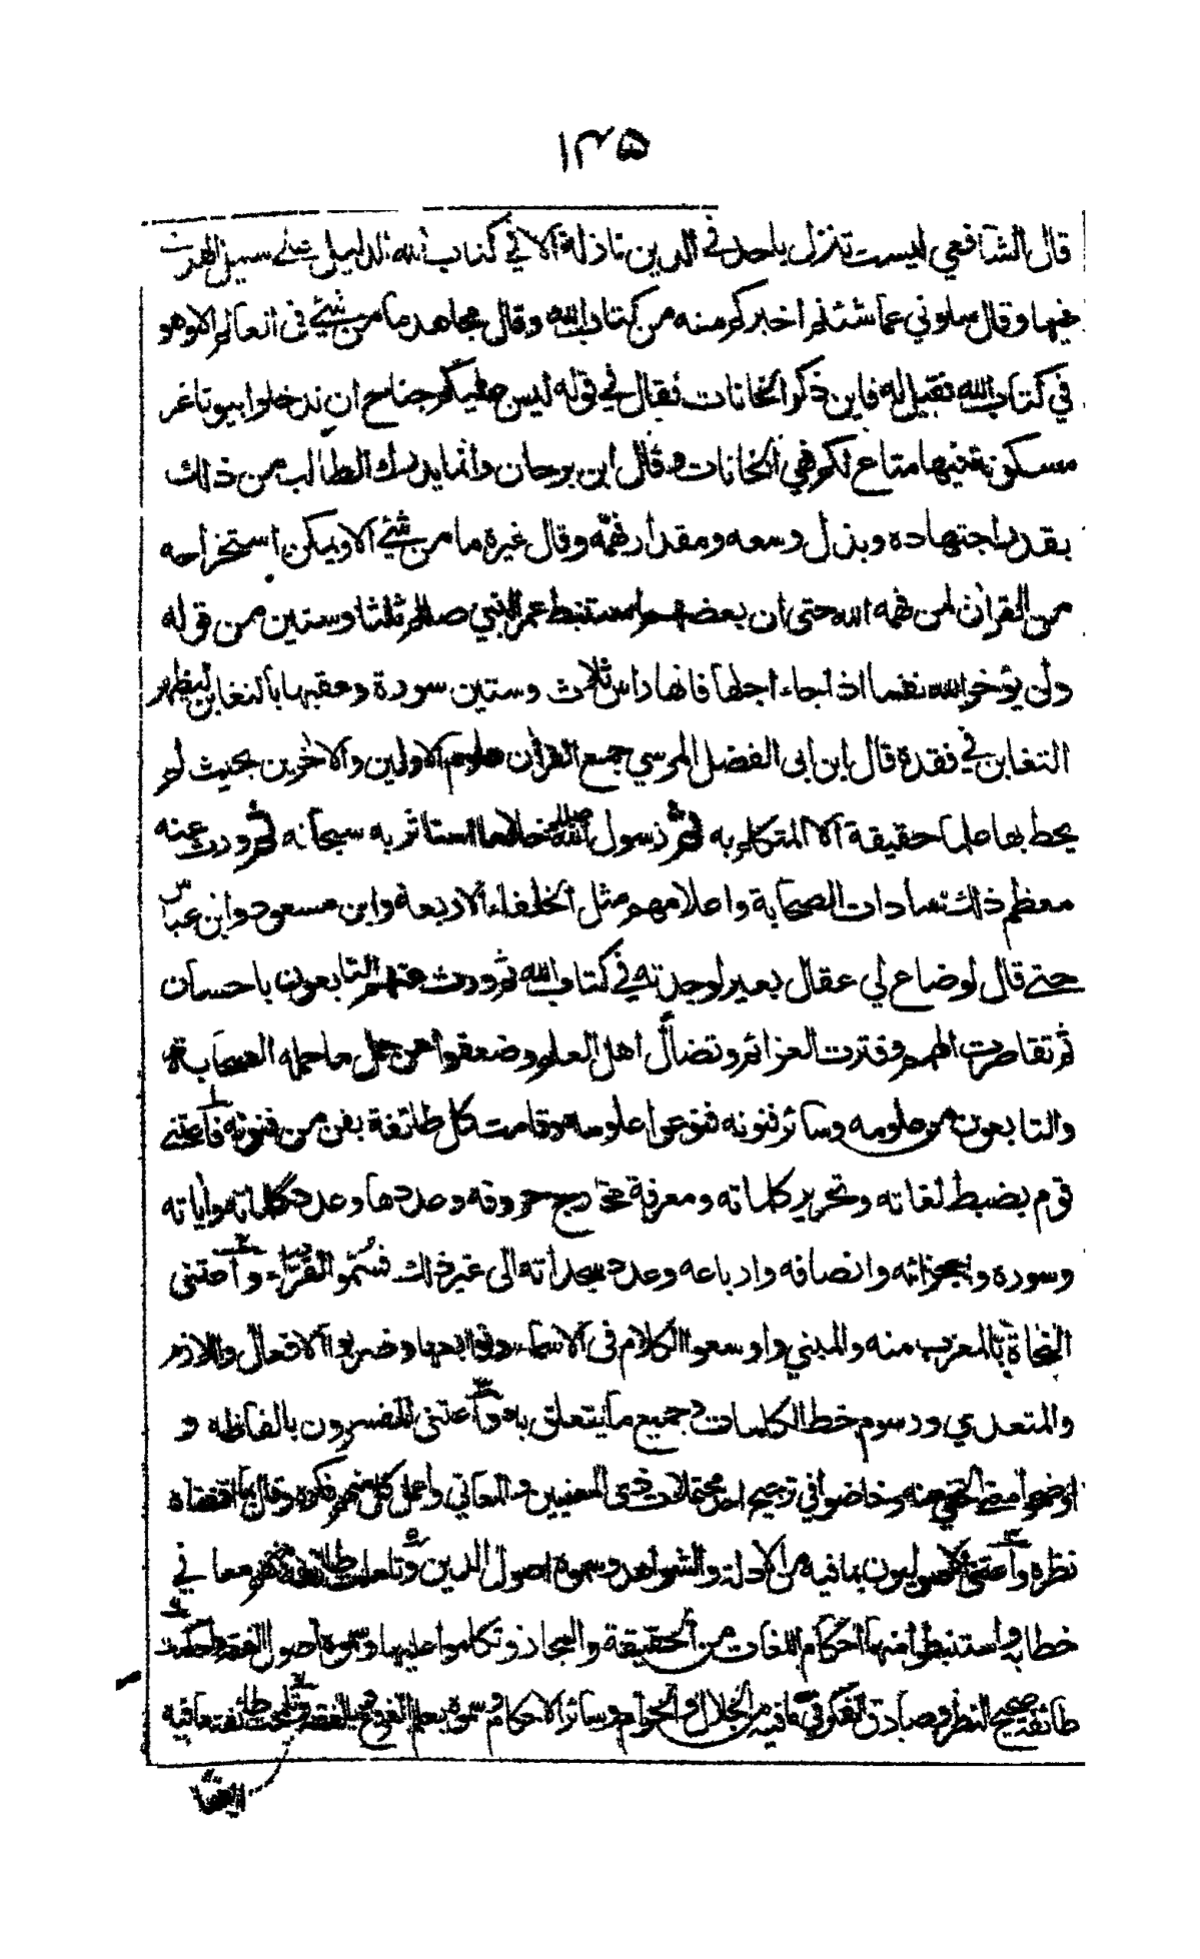 ١٣٥
قال الشافعي ليست تنزل باحد في الدين نازلة الا في كتاب الله الدليل على سبيل الهدى
فيها وقال سلوني عما شئتم اخبركم منه من كتاب الله وقال مجاهد ما من شئ في العالم الا وهو
في كتاب الله فقيل له فاين ذكر الخانات فقال في قوله ليس عليكم جناح ان تدخلوا بيوتا غير
مسكونة فيها متاع لكم فهي الخانات وقال ابن برجان وانما يدرك الطالب من ذلك
بقدر اجتهاده وبذل وسعه ومقدار فهمه وقال غيره ما من شئ الا ويمكن استخراجه
من القرآن لمن فهمه الله حتى ان بعضهم استنبط عمر النبي صلعم ثلثا وستين من قوله
ولن يؤخر الله نفسا اذا جاء اجلها فانها راس ثلاث وستين سورة وعقبها بالتغابن ليظهر
التغابن في فقده قال ابن ابى الفضل المرسي جمع القرآن علوم الاولين والآخرين بحيث لم
يحط بها علما حقيقة الا المتكلم به ثم رسول الله صلعم خلا ما استاثر به سبحانه ثم ورث عنه
معظم ذلك سادات الصحابة واعلامهم مثل الخلفاء الاربعة وابن مسعود وابن عباس
حتى قال لو ضاع لي عقال بعير لوجدته في كتاب الله ثم ورث عنهم التابعون باحسان
ثم تقاصرت الهمم وفترت العزائم وتضاأل اهل العلم وضعفوا عن حمل ما حمله الصحابة
والتابعون من علومه وسائر فنونه فنوعوا علومه وقامت كل طائفة بفن من فنونه فاعتنى
قوم بضبط لغاته وتحرير كلماته ومعرفة مخارج حروفه وعددها وعدد كلماته وآياته
وسوره و اجزائه وانصافه وارباعه وعدد سجداته الى غير ذلك فسموا القراء واعتنى
النحاة بالمعرب منه والمبني واوسعوا الكلام في الاسماء وتوابعها وضربوا الافعال واللازم
والمتعدي ورسوم خط الكلمات وجميع ما يتعلق به واعتنى المفسرون بالفاظه و
اوضحوا معنى الخفي منه وخاضوا في ترجيح احد محتملات ذى المعنيين والمعاني واعمل كل منهم فكره وقال بما اقتضاه
نظره واعتنى الاصوليون بما فيه من الادلة والشواهد وسموه اصول الدين وتاملت طائفة منهم معاني
خطابه واستنبطوا منها احكام اللغات من الحقيقة والمجاز وتكلموا عليها وسموه اصول الفقه واحكمت
طائفة صحيح النظر وصادق الفكر في ما فيه من الحلال والحرام وسائر الاحكام وسموه بعلم الفروع والفقه وتلمحت طائفة ما فيه